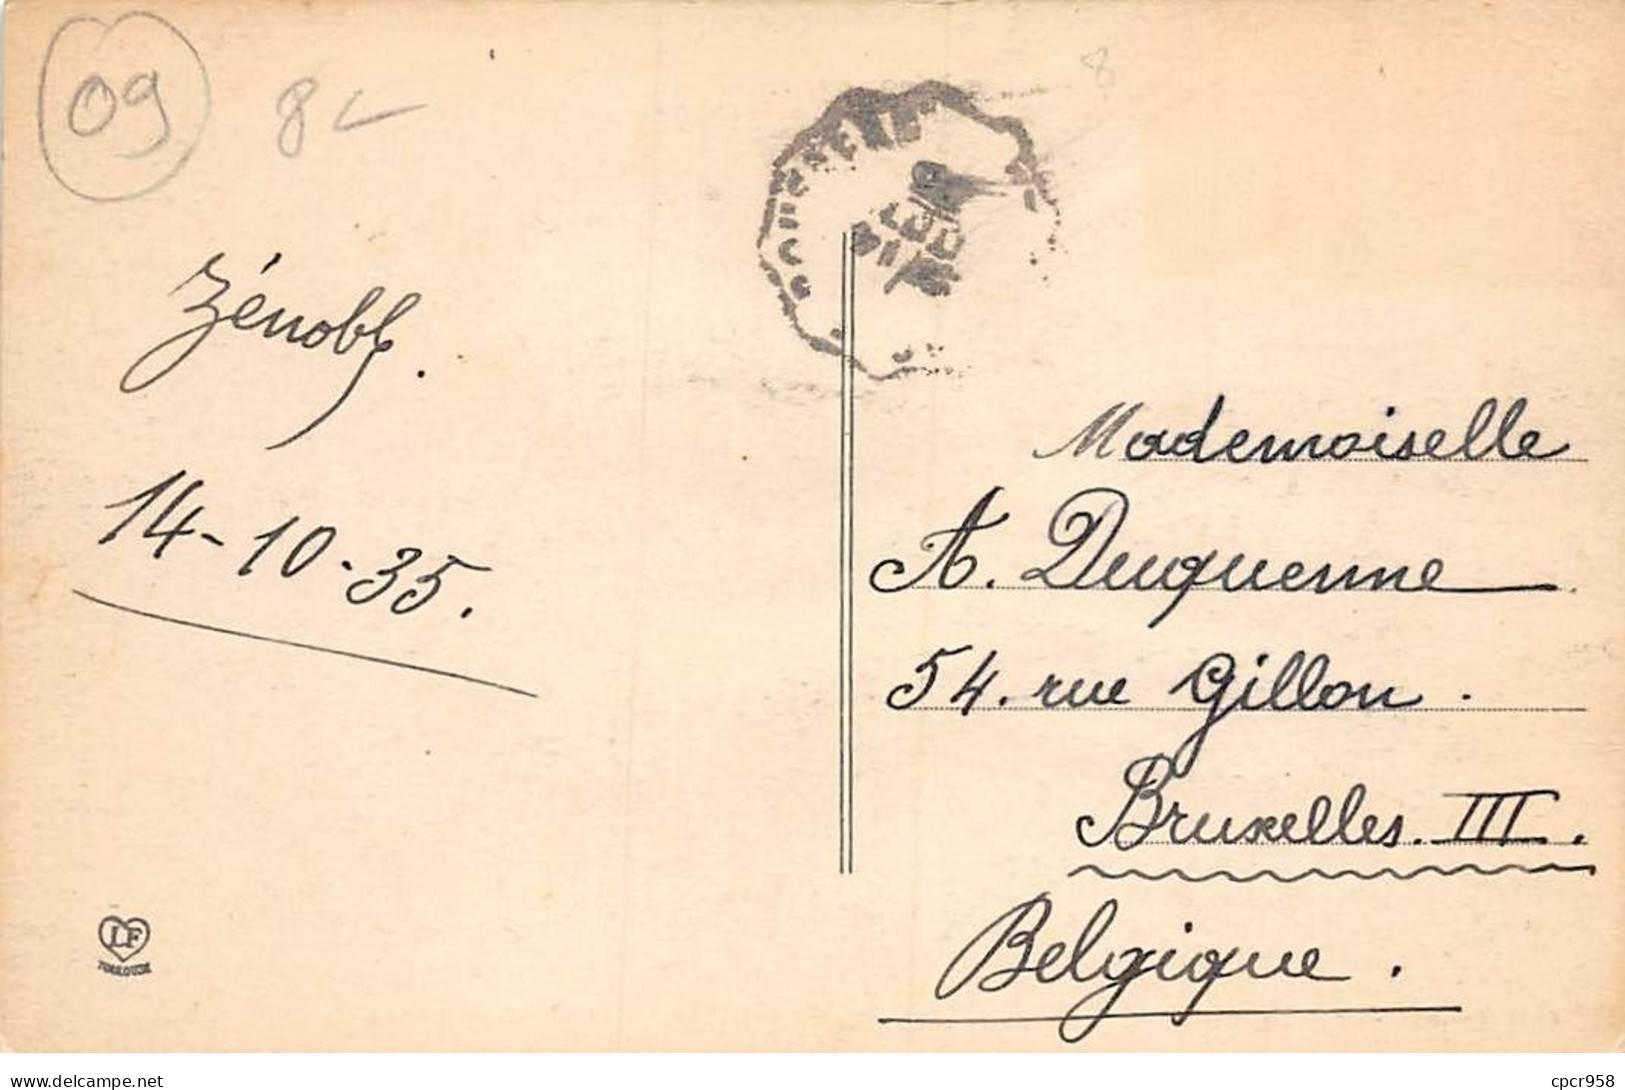 09
8
8
Zénobe.
14-10-35.
Mademoiselle
A. Duquenne
54. rue Gillon.
Bruxelles. III.
Belgique.
LF
TOULOUSE
delcampe.net
cpcr958